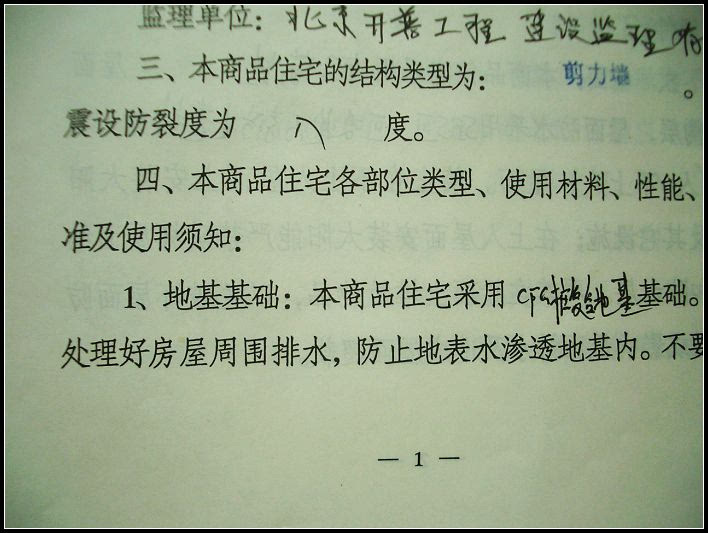 监理单位：北京开善工程建设监理有
三、本商品住宅的结构类型为：剪力墙。
震设防裂度为 八 度。
四、本商品住宅各部位类型、使用材料、性能、
准及使用须知：
1、地基基础：本商品住宅采用CFG地基基础。
处理好房屋周围排水，防止地表水渗透地基内。不要
— 1 —